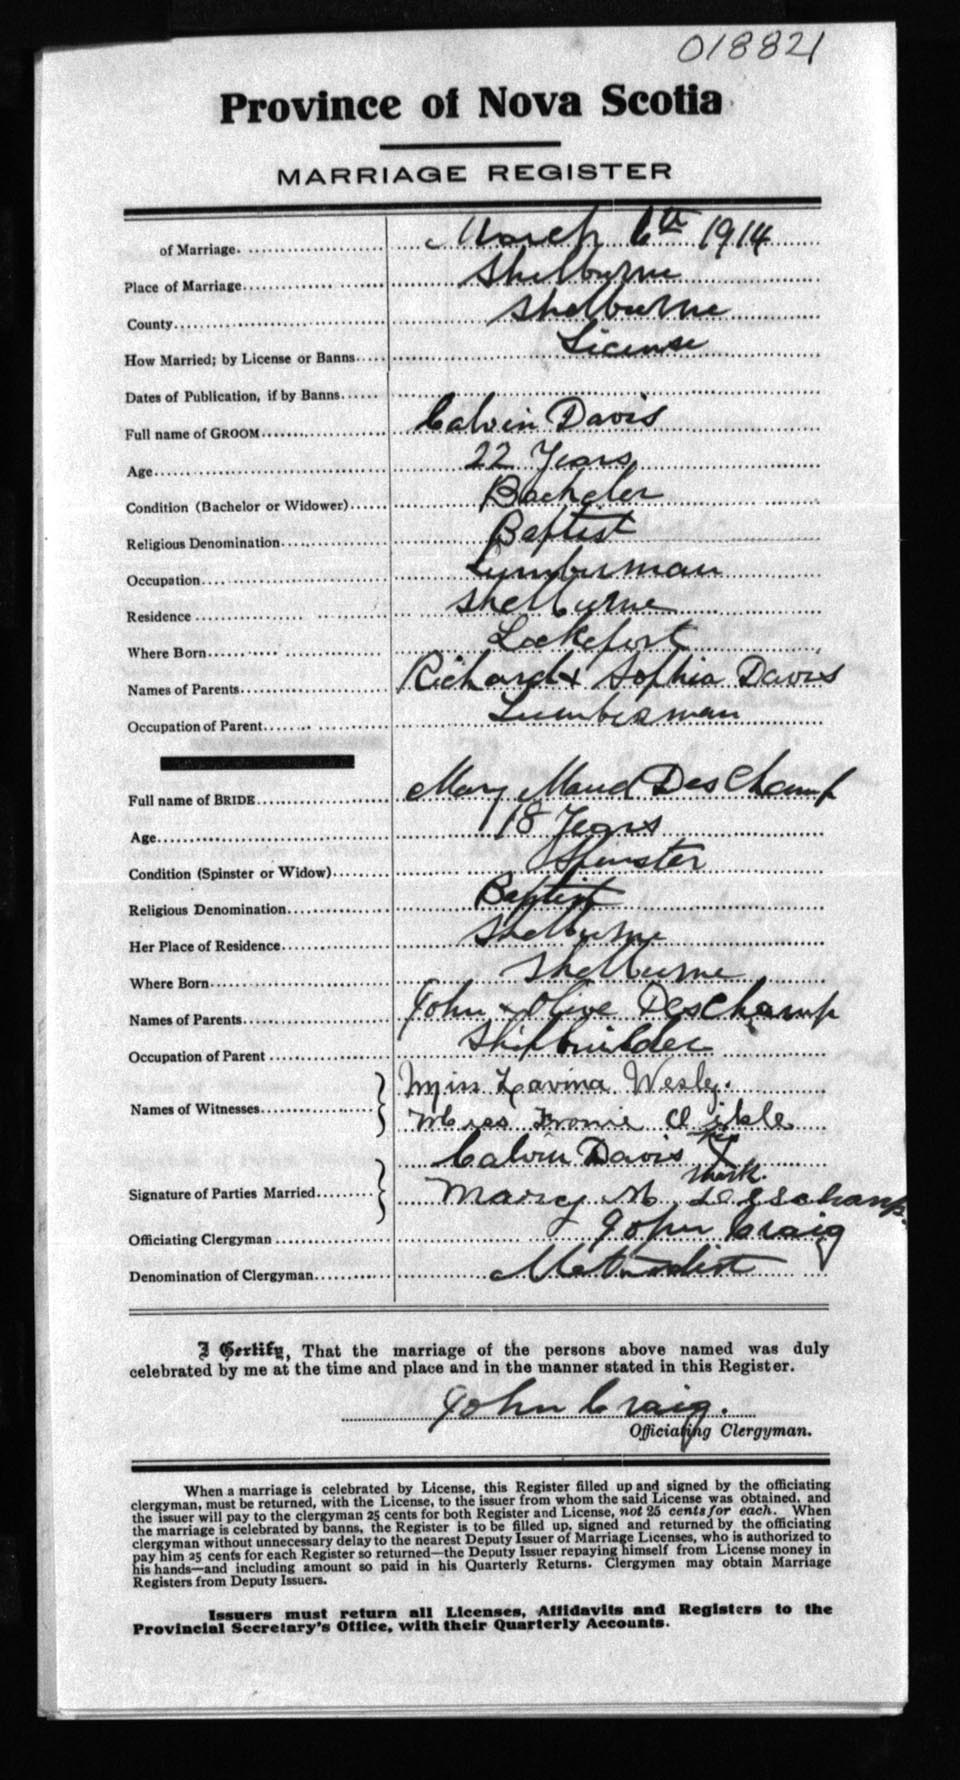 018821
Province of Nova Scotia
MARRIAGE REGISTER
of Marriage. March 6th 1914
Place of Marriage. Shelburne
County Shelburne
How Married; by License or Banns License
Dates of Publication, if by Banns
Full name of GROOM Calvin Davis
Age 22 Years
Condition (Bachelor or Widower) Bachelor
Religious Denomination Baptist
Occupation Lumberman
Residence Shelburne
Where Born Lockeport
Names of Parents Richard & Sophia Davis
Occupation of Parent Lumberman
Full name of BRIDE Mary Maud DesChamp
Age 18 Years
Condition (Spinster or Widow) Spinster
Religious Denomination Baptist
Her Place of Residence Shelburne
Where Born Shelburne
Names of Parents John & Olive DesChamp
Occupation of Parent Shipbuilder
Miss Lavina Wesly.
Names of Witnesses Miss
Calvin Davis his X mark.
Signature of Parties Married Marcy M Desschamp.
Officiating Clergyman John Craig
Denomination of Clergyman Methodist
I Certify, That the marriage of the persons above named was duly
celebrated by me at the time and place and in the manner stated in this Register.
John Craig.
Officiating Clergyman.
When a marriage is celebrated by License, this Register filled up and signed by the officiating
clergyman, must be returned, with the License, to the issuer from whom the said License was obtained, and
the issuer will pay to the clergyman 25 cents for both Register and License, not 25 cents for each. When
the marriage is celebrated by banns, the Register is to be filled up, signed and returned by the officiating
clergyman without unnecessary delay to the nearest Deputy Issuer of Marriage Licenses, who is authorized to
pay him 25 cents for each Register so returned—the Deputy Issuer repaying himself from License money in
his hands—and including amount so paid in his Quarterly Returns. Clergymen may obtain Marriage
Registers from Deputy Issuers.
Issuers must return all Licenses, Affidavits and Registers to the
Provincial Secretary's Office, with their Quarterly Accounts.